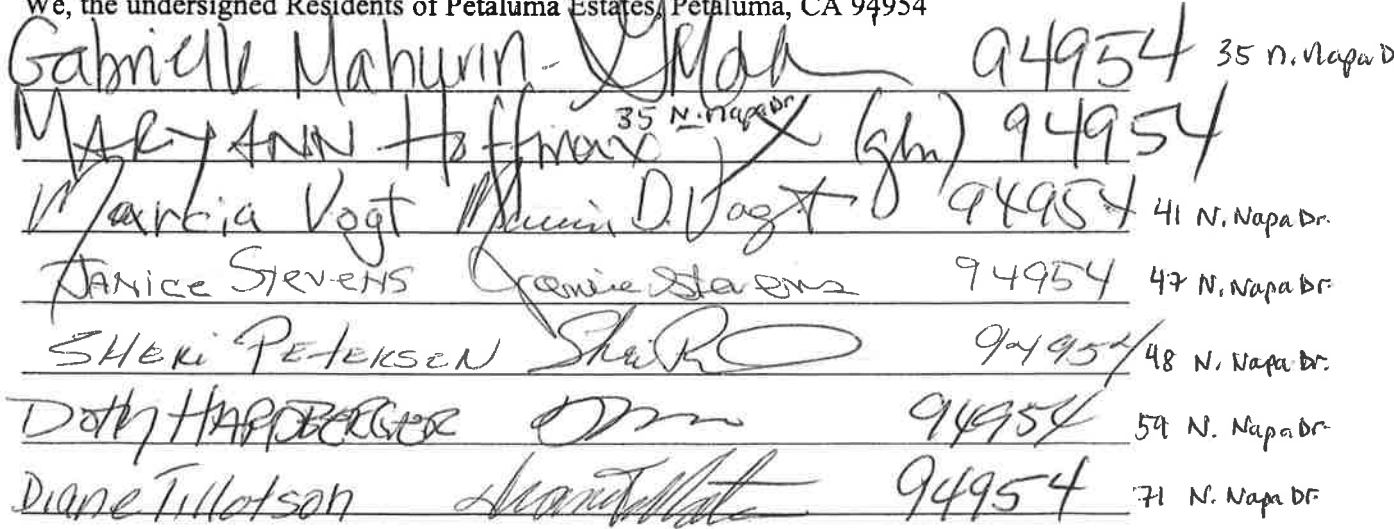 We, the undersigned Residents of Petaluma Estates, Petaluma, CA 94954
Gabrielle Mahurin- 94954 35 N. Napa D
MARYANN Hoffman 35 N. Napa Dr. X (ghn) 94954
Marcia Vogt Marcia D. Vogt 94954 41 N. Napa Dr.
JANice STevenS Janice Stevens 94954 47 N. Napa Dr.
SHERi PETERSEN 94954 48 N. Napa Dr.
Dotty 94954 59 N. Napa Dr.
Diane Tillotson Diane Tillotson 94954 71 N. Napa Dr.